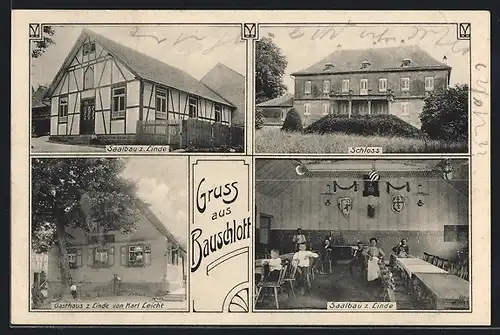 Saalbau z. Linde
Schloss
Gruss
aus
Bauschlott
Gasthaus z Linde von Karl Leicht
Saalbau z. Linde